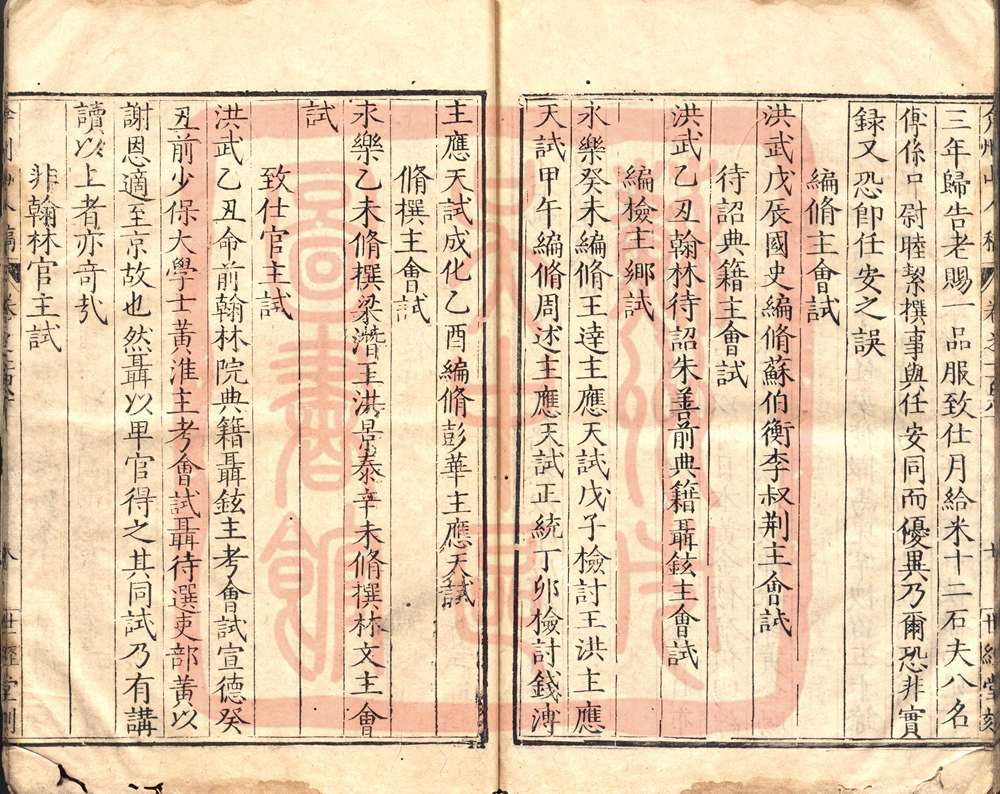 三年歸告老賜一品服致仕月給米十二石夫八名
傅係口尉睦絜撰事與任安同而優異乃爾恐非實
録又恐卽任安之誤
編脩主會試
洪武戊辰國史編脩蘇伯衡李叔荆主會試
待詔典籍主會試
洪武乙丑翰林待詔朱善前典籍聶鉉主會試
編檢主鄉試
永樂癸未編脩王達主應天試戊子檢討王洪主應
天試甲午編脩周述主應天試正統丁夘檢討錢溥
主應天試成化乙酉編脩彭華主應天試
脩撰主會試
永樂乙未脩撰梁潛王洪景泰辛未脩撰林文主會
試
致仕官主試
洪武乙丑命前翰林院典籍聶鉉主考會試宣德癸
丑前少保大學士黄淮主考會試聶待選吏部黄以
謝恩適至京故也然聶以卑官得之其同試乃有講
讀以上者亦奇㢤
非翰林官主試
世經堂刻